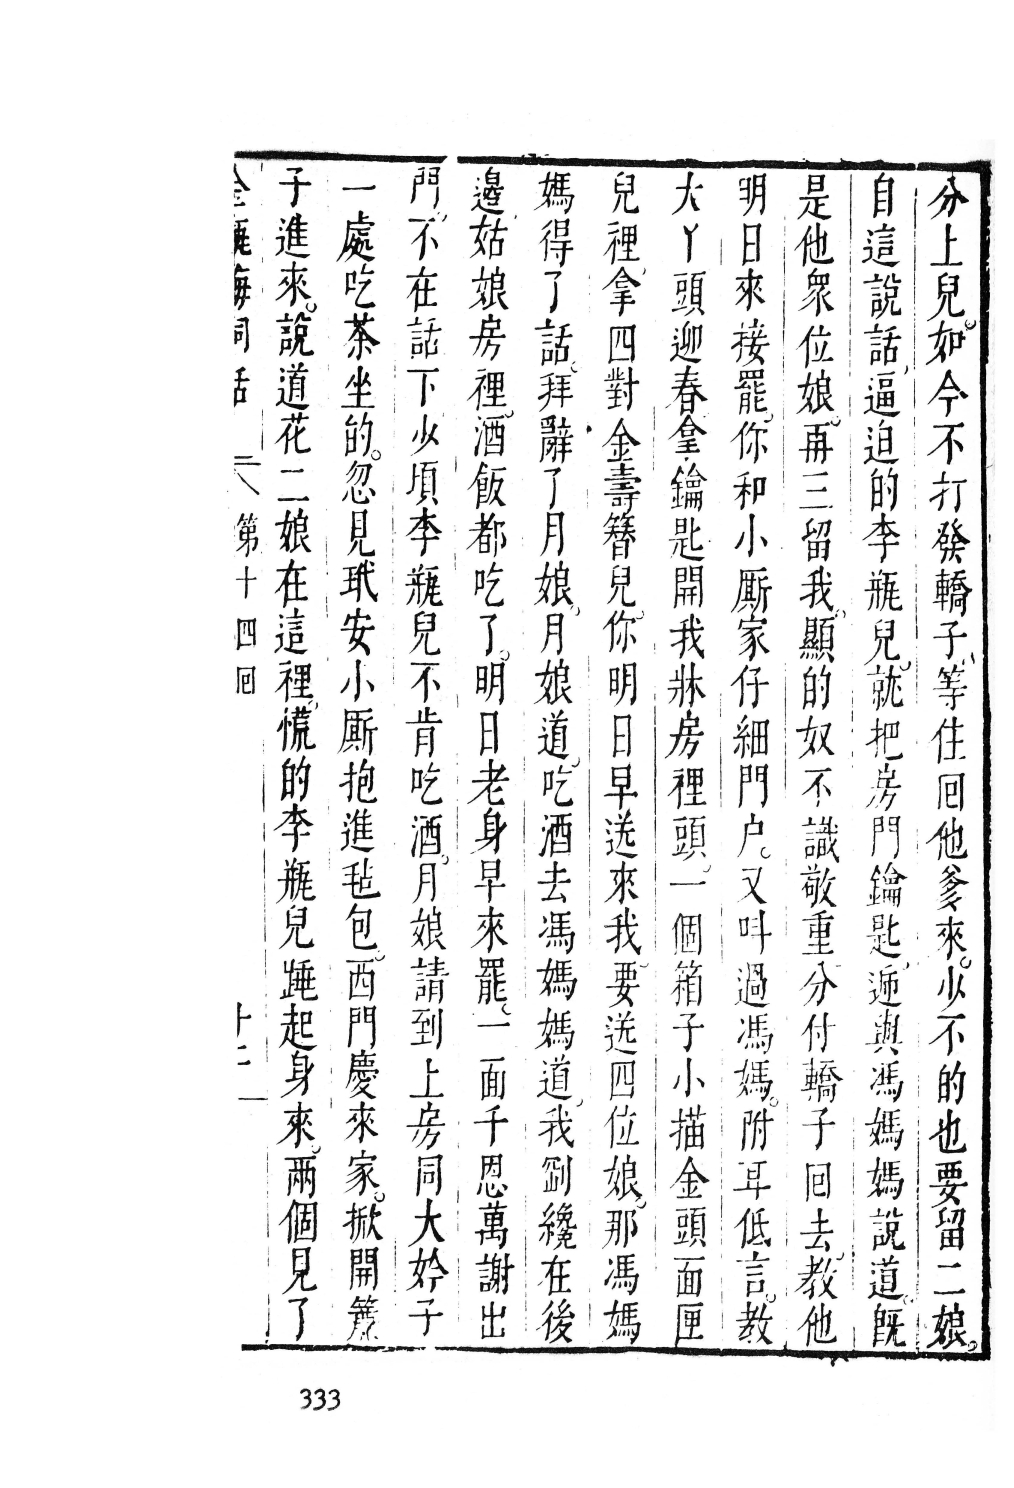 分上兒。如今不打發轎子、等住回他爹來。少不的也要留二娘。
自這說話、逼迫的李瓶兒。就把房門鑰匙、遞與馮媽媽說道。旣
是他衆位娘。再三留我。顯的奴不識敬重分付轎子回去。教他
明日來接罷。你和小厮家仔細門户。又叫過馮媽。附耳低言。教
大丫頭迎春拿鑰匙開我牀房裡頭。一個箱子小描金頭面匣
兒裡、拿四對金壽簪兒。你明日早送來我要送四位娘。那馮媽
媽得了話。拜辭了月娘。月娘道。吃酒去馮媽媽道。我剛纔在後
邊姑娘房裡。酒飯都吃了。明日老身早來罷。一面千恩萬謝出
門。不在話下少頃李瓶兒不肯吃酒。月娘請到上房同大妗子
一處吃茶坐的。忽見玳安小厮抱進毡包。西門慶來家。掀開簾
子進來。說道花二娘在這裡。慌的李瓶兒跳起身來。兩個見了
金瓶梅詞話 第十四回 十二
333